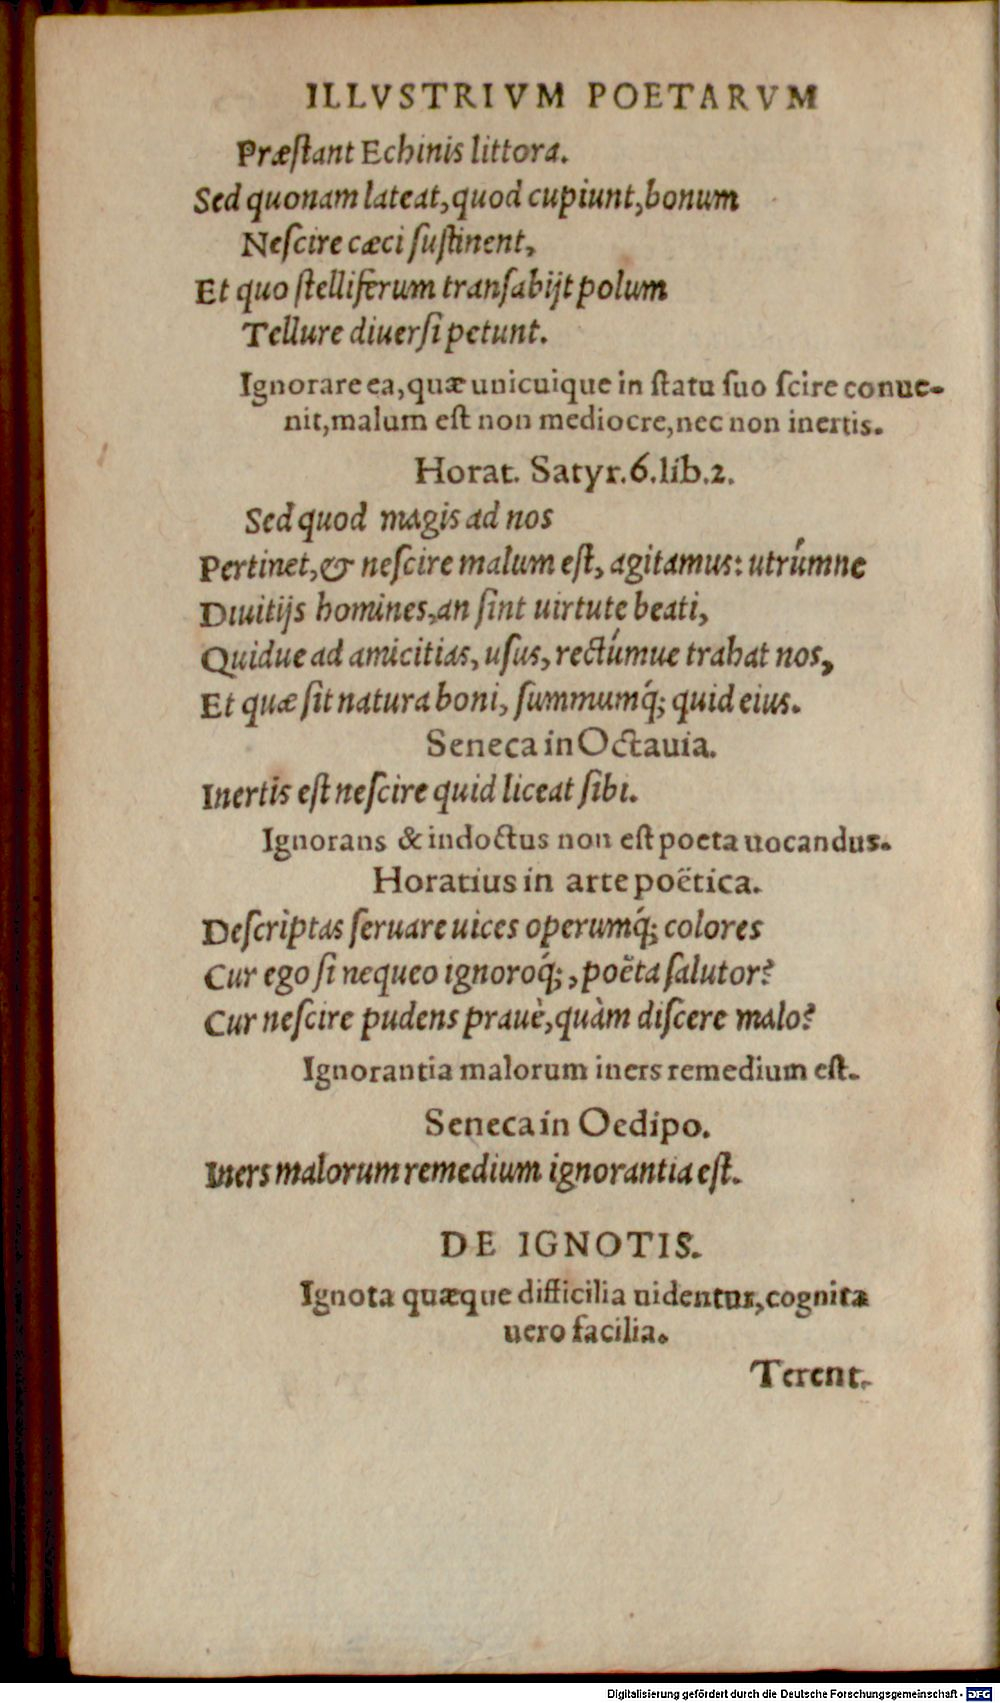 ILLVSTRIVM POETARVM
Præſtant Echinis littora.
Sed quonam lateat, quod cupiunt, bonum
Neſcire cæci ſuſtinent,
Et quo ſtelliferum tranſabijt polum
Tellure diuerſi petunt.
Ignorare ea, quæ unicuique in ſtatu ſuo ſcire conue-
nit, malum eſt non mediocre, nec non inertis.
Horat. Satyr. 6. lib. 2.
Sed quod magis ad nos
Pertinet, & neſcire malum eſt, agitamus: utrúmne
Diuitijs homines, an ſint uirtute beati,
Quidue ad amicitias, uſus, rectúmue trahat nos,
Et quæ ſit natura boni, ſummumq́; quid eius.
Seneca in Octauia.
Inertis eſt neſcire quid liceat ſibi.
Ignorans & indoctus non eſt poeta uocandus.
Horatius in arte poëtica.
Deſcriptas ſeruare uices operumq́; colores
Cur ego ſi nequeo ignoroq́;, poëta ſalutor?
Cur neſcire pudens prauè, quàm diſcere malo?
Ignorantia malorum iners remedium eſt.
Seneca in Oedipo.
Iners malorum remedium ignorantia eſt.
DE IGNOTIS.
Ignota quæque difficilia uidentur, cognita
uero facilia.
Terent.
Digitalisierung gefördert durch die Deutsche Forschungsgemeinschaft - DFG